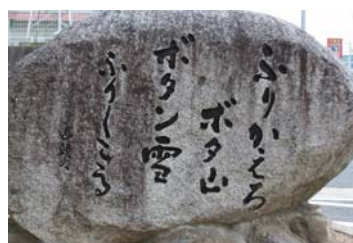 ふりかへる
ボタ山
ボタン雪
ふりしきる